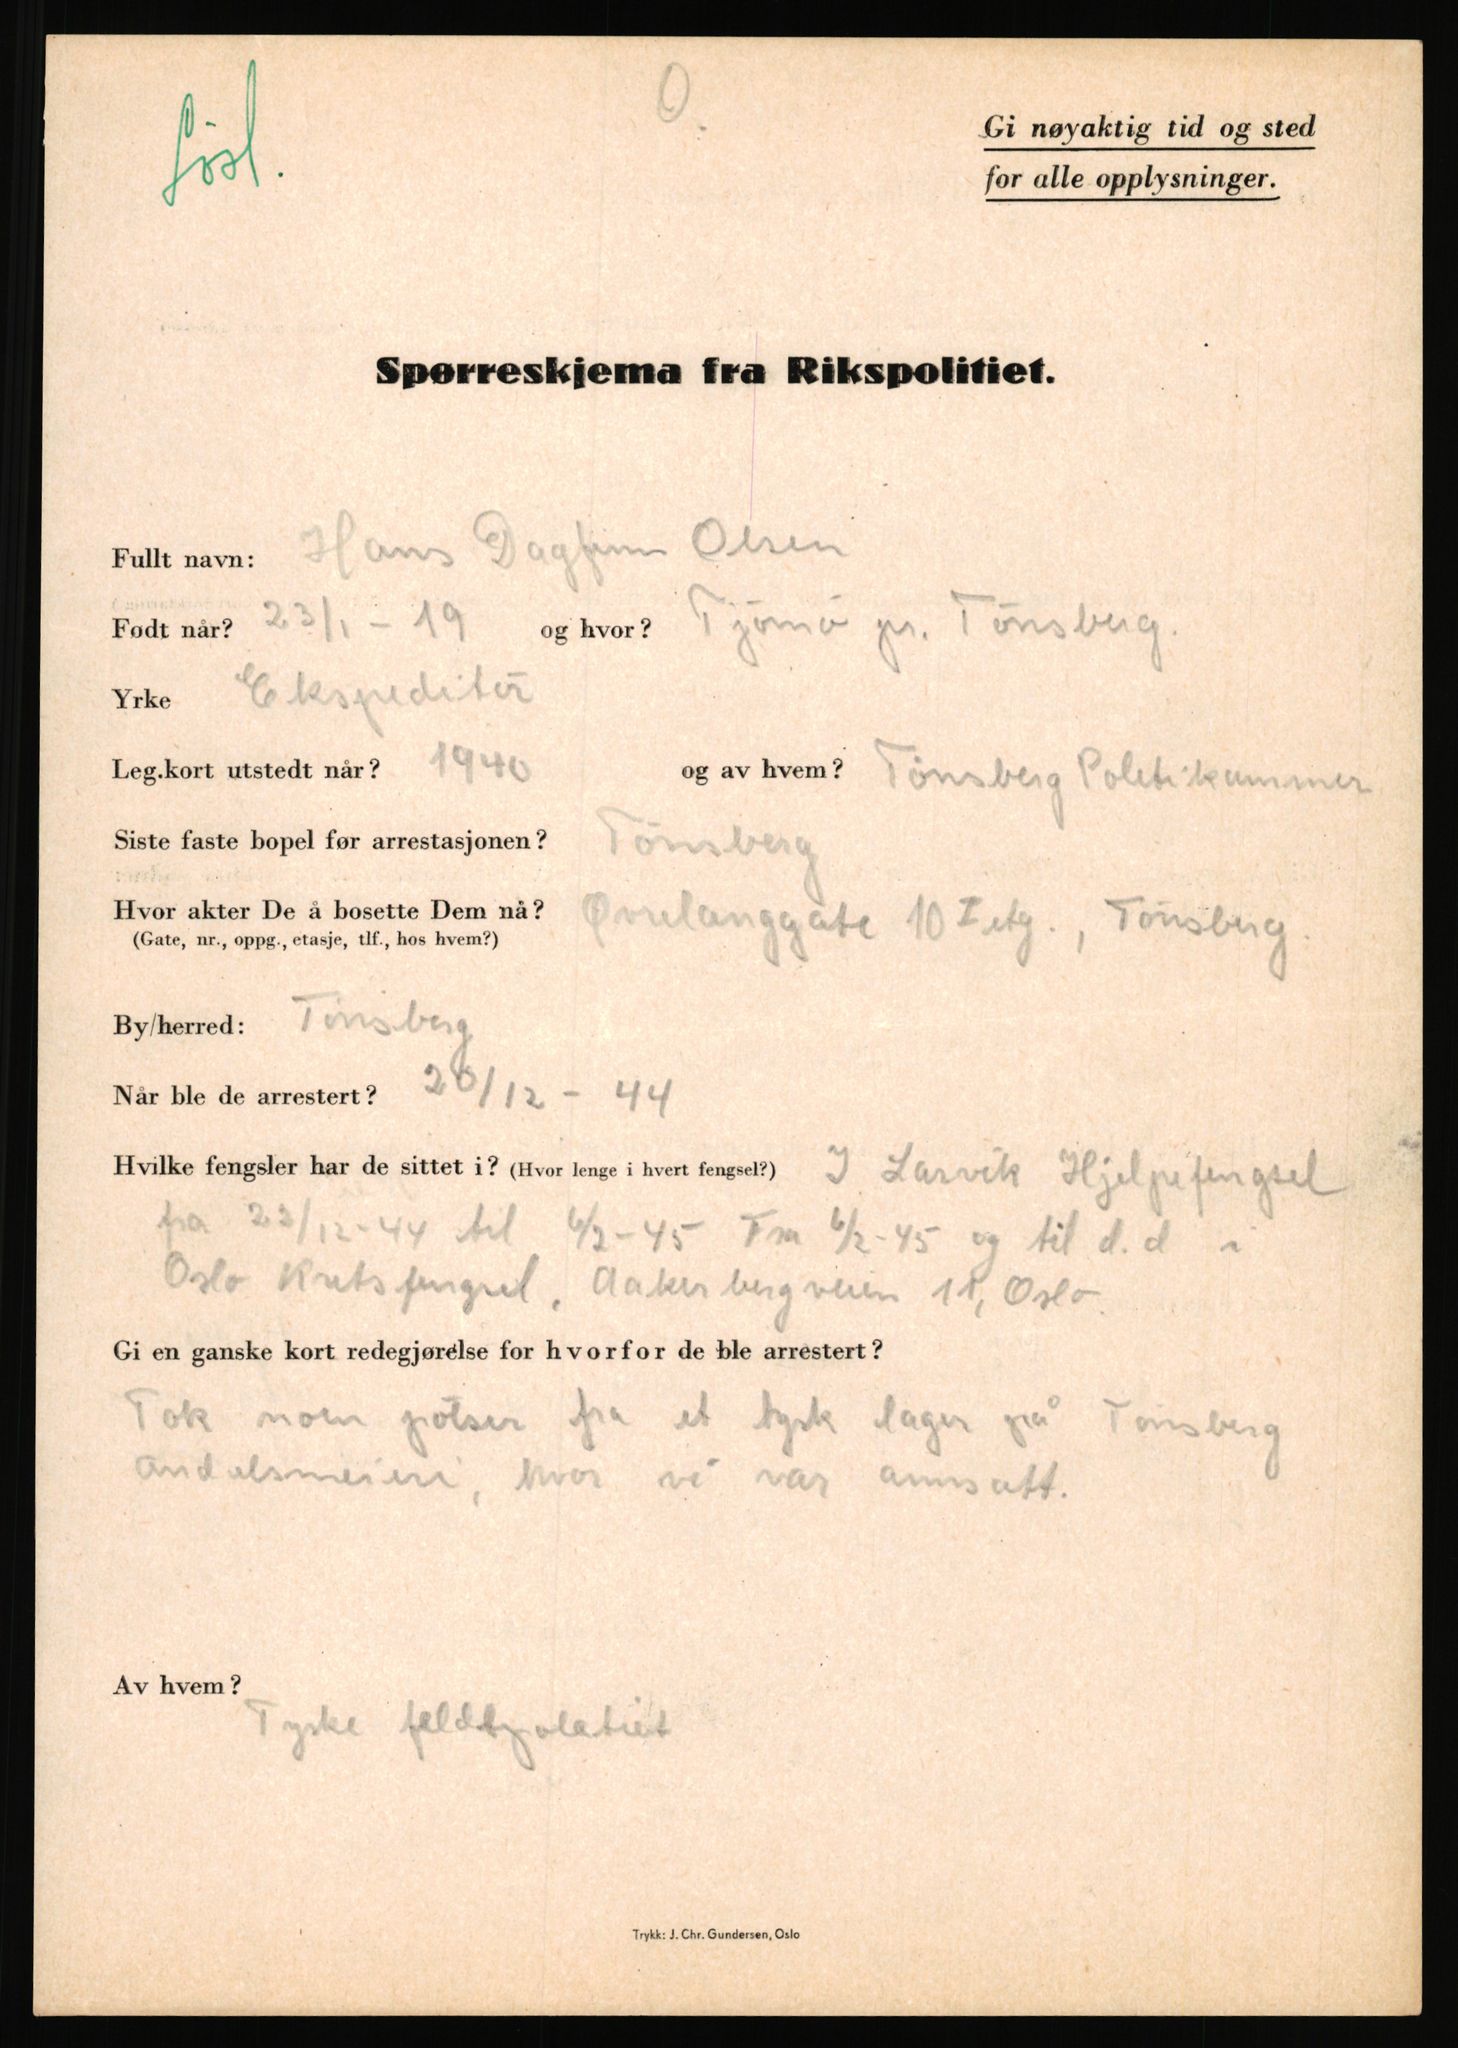 Løsl.
O.
Gi nøyaktig tid og sted
for alle opplysninger.
Spørreskjema fra Rikspolitiet.
Fullt navn: Hans Dagfinn Olsen
Født når? 23/1 - 19 og hvor? Tjømø pr. Tönsberg.
Yrke Ekspeditör
Leg.kort utstedt når? 1940 og av hvem? Tönsberg Politikammer
Siste faste bopel før arrestasjonen? Tönsberg
Hvor akter De å bosette Dem nå? Øvrelanggate 10 I etg., Tönsberg.
(Gate, nr., oppg., etasje, tlf., hos hvem?)
By/herred: Tönsberg
Når ble de arrestert? 20/12 - 44
Hvilke fengsler har de sittet i? (Hvor lenge i hvert fengsel?) I Larvik Hjelpefengsel
fra 23/12-44 til 6/2-45 Fra 6/2-45 og til d.d i
Oslo Kretsfengsel, Aakerbergveien 11, Oslo.
Gi en ganske kort redegjørelse for hvorfor de ble arrestert?
Tok noen pölser fra et tysk lager på Tönsberg
andelsmeieri, hvor vi var annsatt.
Av hvem?
Tyske feldtpolitiet
Trykk: J. Chr. Gundersen, Oslo